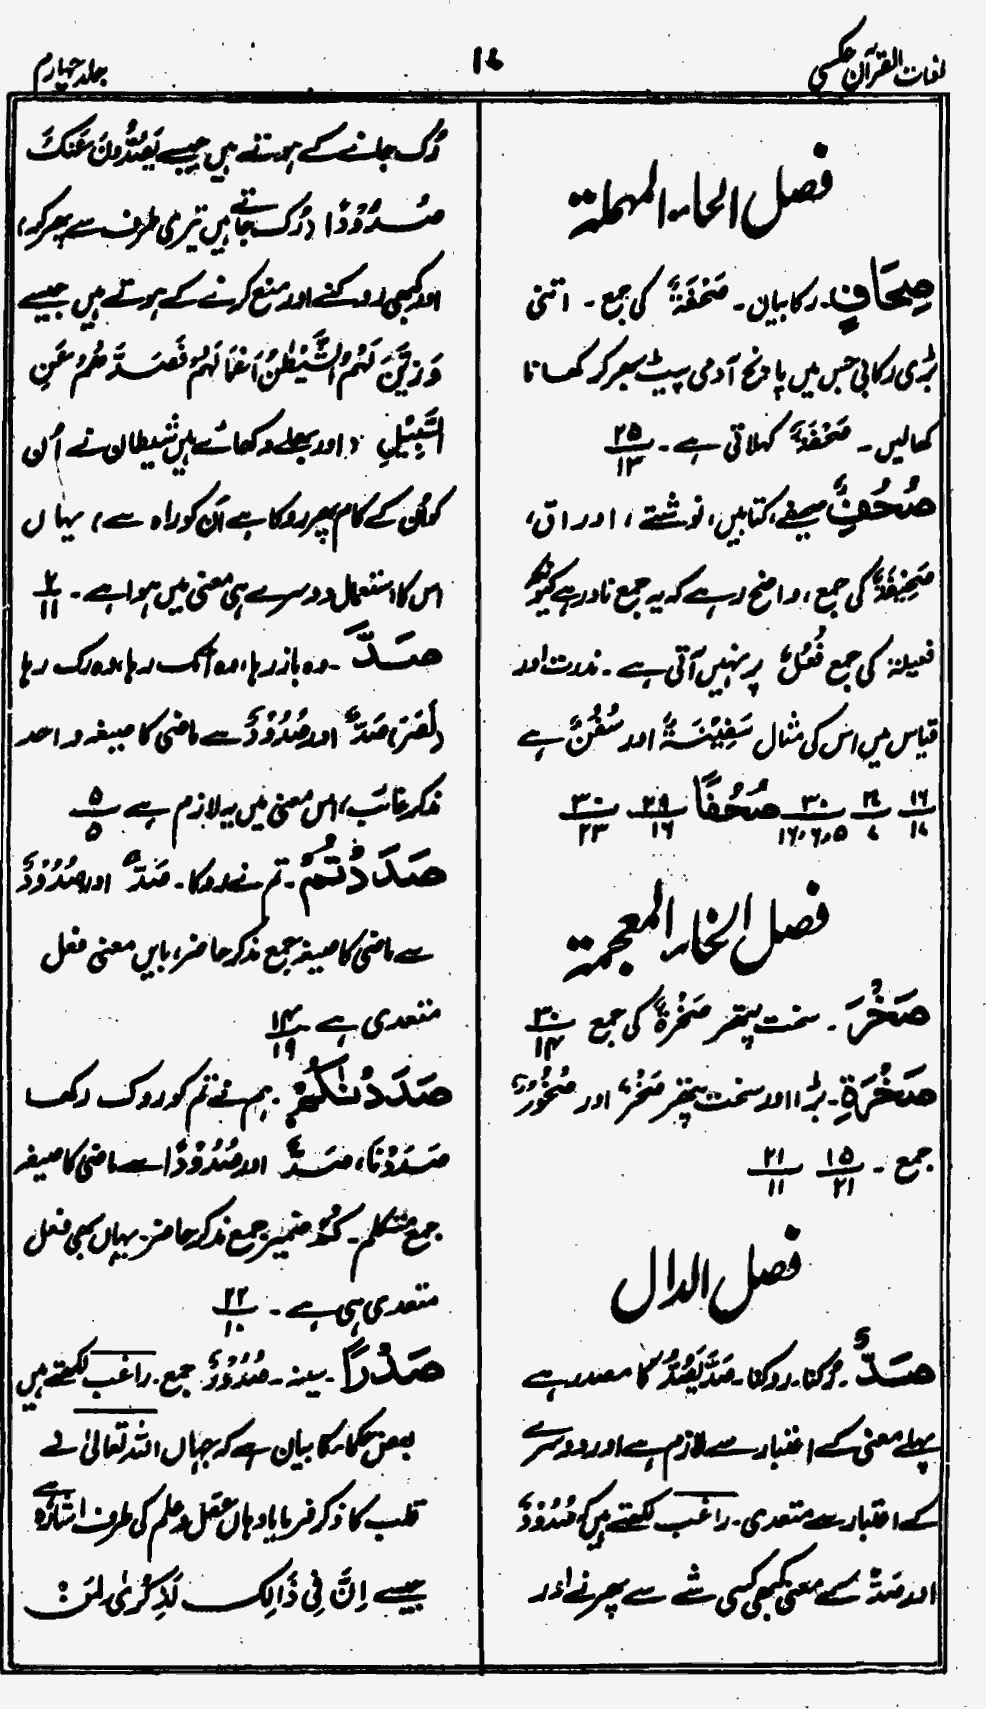 لغات القرآن عکسی
۱۷
جلد چہارم
فصل الحاء المہملۃ
صِحَافٍ۔ رکابیاں۔ صَحْفَۃٌ کی جمع۔ اتنی
بڑی رکابی جس میں پانچ آدمی پیٹ بھر کر کھانا
کھالیں۔ صَحْفَۃٌ کہلاتی ہے۔ ۲۵/۱۳
صُحُفٌ صحیفے، کتابیں، نوشتے، اوراق،
صَحِیْفَۃٌ کی جمع، واضح رہے کہ یہ جمع نادر ہے کیونکہ
فعیلۃ کی جمع فُعُلٌ پر نہیں آتی ہے۔ ندرت اور
قیاس میں اس کی مثال سَفِیْنَۃٌ اور سُفُنٌ ہے
۱۶/۱۷ ۲۷/۷ ۳۰/۱۶،۶،۵ صُحُفًا ۲۹/۱۶ ۳۰/۲۳
فصل الخاء المعجمۃ
صَخْرَ۔ سخت پتھر صَخْرَۃٌ کی جمع ۳۰/۱۴
صَخْرَۃٍ۔ بڑا اور سخت پتھر صَخْرٌ اور صُخُوْرٌ
جمع۔ ۱۵/۲۱ ۲۱/۱۱
فصل الدال
صَدٌّ۔ رُکنا۔ روکنا۔ صَدَّ یَصُدُّ کا مصدر ہے
پہلے معنی کے اعتبار سے لازم ہے اور دوسرے
کے اعتبار سے متعدی۔ راغب لکھتے ہیں کہ صُدُوْدٌ
اور صَدٌّ کے معنی کبھی کسی شے سے پھرنے اور
رُک جانے کے ہوتے ہیں جیسے یَصُدُّوْنَ عَنْکَ
صُدُوْدًا (رُک جاتے ہیں تیری طرف سے پھر کر،
اور کبھی روکنے اور منع کرنے کے ہوتے ہیں جیسے
وَزَیَّنَ لَہُمُ الشَّیْطٰنُ اَعْمَالَہُمْ فَصَدَّھُمْ عَنِ
السَّبِیْلِ (اور بھلے دکھائے ہیں شیطان نے اُن
کو اُن کے کام پھر روکا ہے اُن کو راہ سے) یہاں
اس کا استعمال دوسرے ہی معنی میں ہوا ہے۔ ۲/۱۱
صَدَّ۔ وہ باز رہا، وہ اٹک رہا، وہ رک رہا
(نَصَرَ) صَدٌّ اور صُدُوْدٌ سے ماضی کا صیغہ واحد
مذکر غائب، اس معنی میں یہ لازم ہے ۵/۵
صَدَدْتُمْ۔ تم نے روکا۔ صَدٌّ اور صُدُوْدٌ
سے ماضی کا صیغہ جمع مذکر حاضر، بایں معنی فعل
متعدی ہے ۱۴/۱۹
صَدَدْنٰکُمْ۔ ہم نے تم کو روک رکھا
صَدَدْنَا، صَدٌّ اور صُدُوْدًا سے ماضی کا صیغہ
جمع متکلم۔ کُمْ ضمیر جمع مذکر حاضر۔ یہاں بھی فعل
متعدی ہی ہے۔ ۲۲/۱۰
صَدْرًا۔ سینہ۔ صُدُوْرٌ جمع۔ راغب لکھتے ہیں
بعض حکماء کا بیان ہے کہ جہاں اللہ تعالیٰ نے
قلب کا ذکر فرمایا وہاں عقل و علم کی طرف اشارہ ہے
جیسے اِنَّ فِیْ ذَالِکَ لَذِکْرٰی لِمَنْ